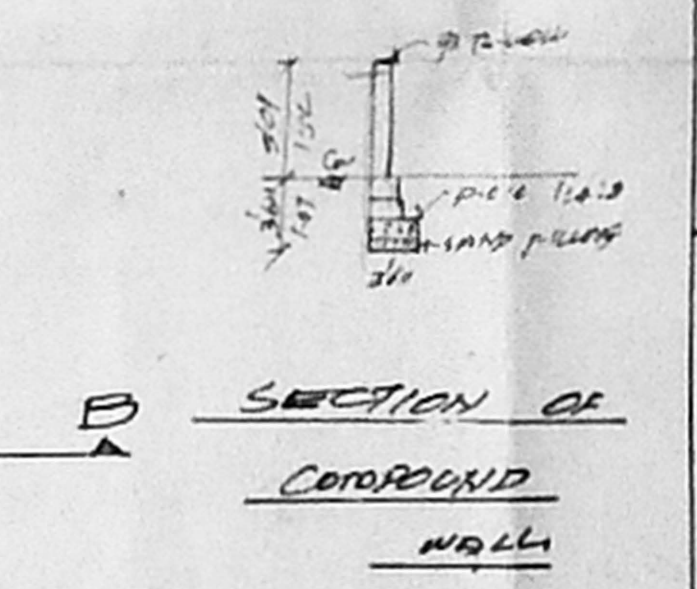 9" Th. WALL
5'0"
1.52
GL
3'6"
1.07
P.C.C 1:4:8
SAND FILLING
3'6"
B
SECTION OF
COMPOUND
WALL